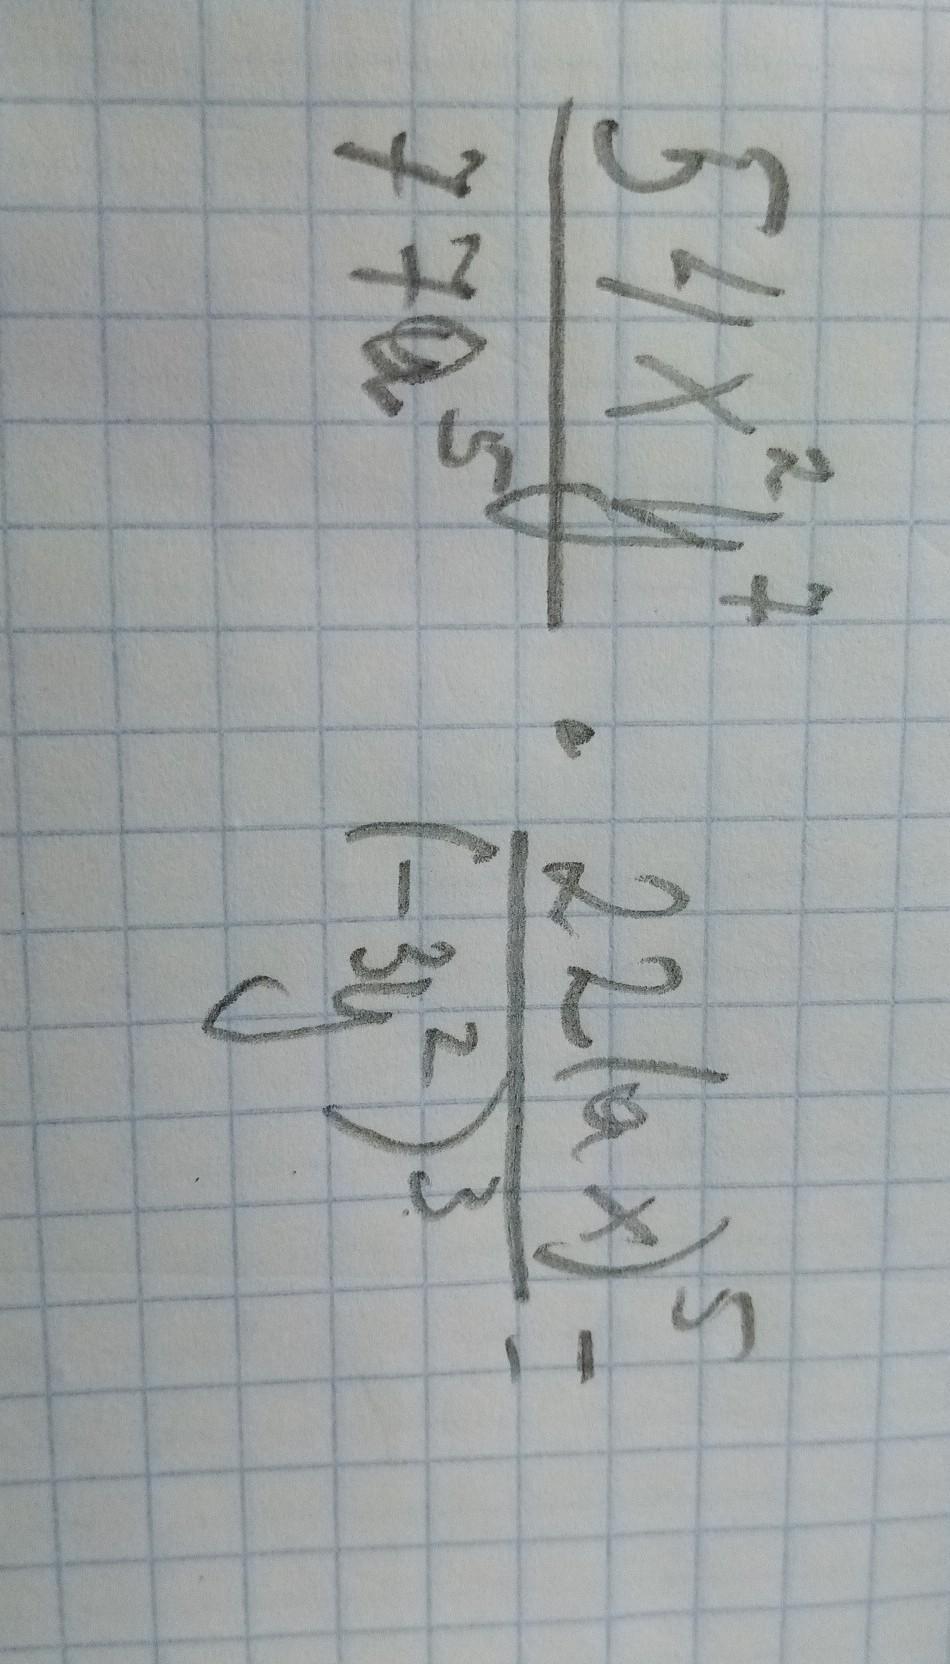 54x²y⁷ / 77a⁵ · 22(ax)⁵ / (-3y²)³ =